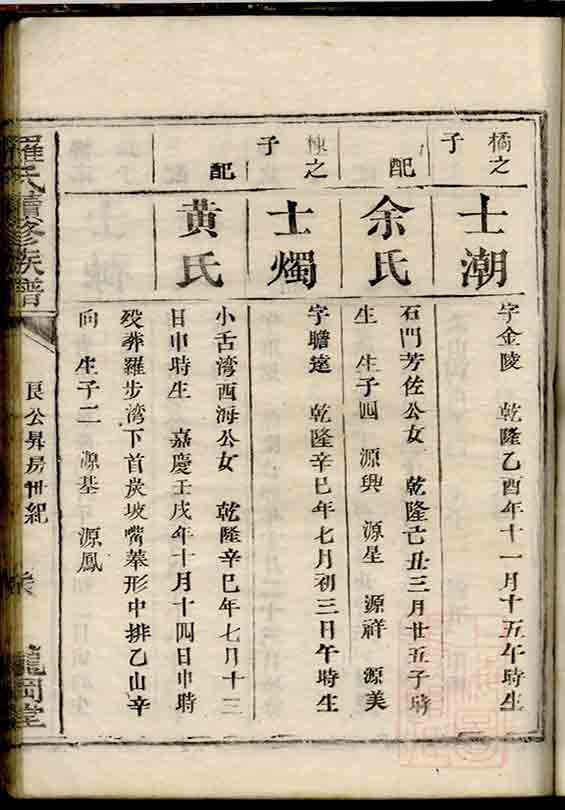 橘之子
士潮
字金陵 乾隆乙酉年十一月十五午時生
配
余氏
石門芳佐公女 乾隆己丑三月廿五子時
生 生子四 源興 源星 源祥 源美
棟之子
士燭
字瞻遠 乾隆辛巳年七月初三日午時生
配
黃氏
小舌湾西海公女 乾隆辛巳年七月十三
日申時生 嘉慶壬戌年十月十四日申時
殁葬羅步湾下首炭坡嘴墓形中排乙山辛
向 生子二 源基 源鳳
羅氏續修族譜
良公昇房世紀
龍岡堂